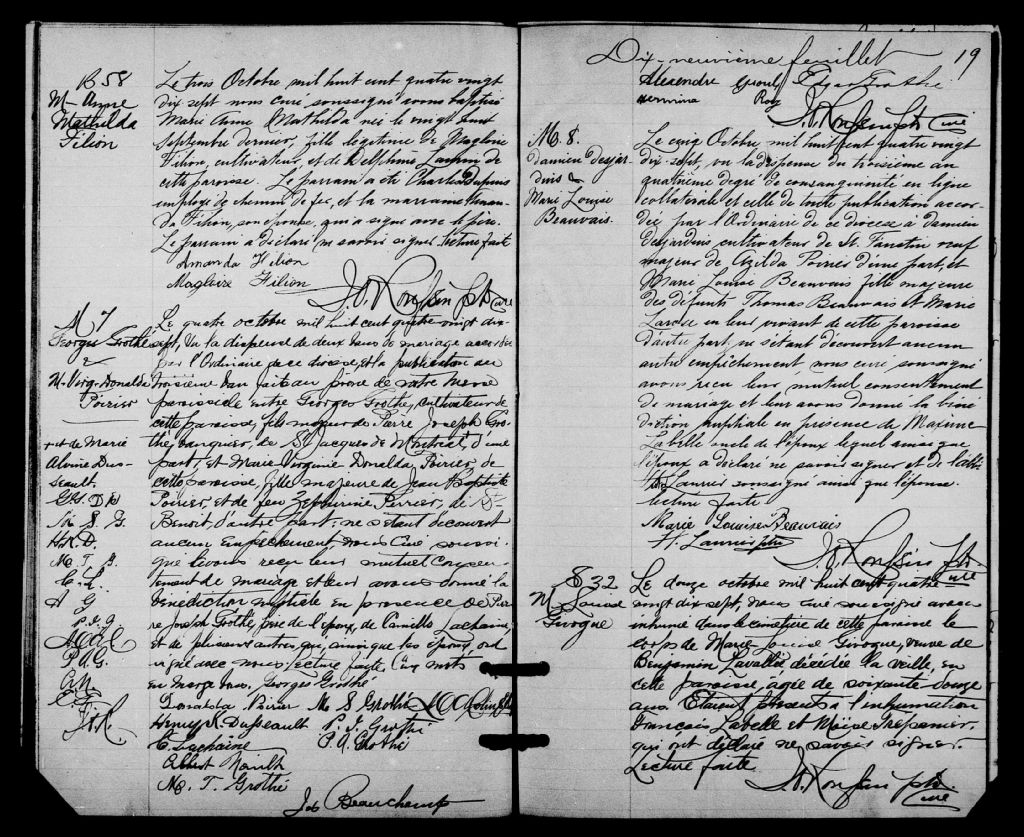 B 58
M- Anne
Mathilda
Filion
Le trois Octobre mil huit cent quatre vingt
dix sept nous curé soussigné avons baptisé
Marie Anne Mathilda née le vingt huit
septembre dernier, fille légitime de Magloire
Filion, cultivateur, et de Delphine de
cette paroisse. Le parrain a été Charles Dupuis
employé de chemin de fer, et la marraine Aman-
da Filion, son épouse, qui a signé avec le père.
Le parrain a déclaré ne savoir signer. Lecture faite
Amanda Filion
Magloire Filion
ptre curé
M 7
Georges Grothé
&
M- Virg- Donalda
Poirier
+ et de Marie
Alvine Dus-
seault.
Le quatre octobre mil huit cent quatre vingt dix-
sept, Vu la dispense de deux bans de mariage accordée
par l'Ordinaire de ce diocèse, et la publication du
troisième ban faite au prône de notre messe
paroissiale entre Georges Grothé, cultivateur de
cette paroisse, fils majeur de Pierre Joseph Gro-
thé, banquier, de St Jacques de Montréal, d'une
part; et Marie Virginie Donalda Poirier, de
cette paroisse, fille majeure de Jean Baptiste
Poirier, et de feu Zéphirine Perrier, de St-
Benoit, d'autre part; ne s'étant découvert
aucun empêchement, nous curé soussi-
gné avons reçu leur mutuel consen-
tement de mariage et leur avons donné la
bénédiction nuptiale en présence de Pier-
re Joseph Grothé, père de l'époux, de Camille Lachaine,
et de plusieurs autres qui, ainsi que les époux, ont
signé avec nous. Lecture faite. Cinq mots
en marge bons. Georges Grothé
G.G. D.P.
M. S. G.
H.K.D.
M. T. G.
C. L.
A G
P. J. G.
P. A. G.
Donalda Poirier M. S Grothé
Henry K. Dusseault P. J. Grothé
C. Lachaine P. A. Grothé
Albert Nault
M. T. Grothé
Jos Beauchamp
Dix-neuvième feuillet 19
Alexandre
Roy
ptre curé
M. 8.
Damien Desjar
dins &
Marie Louise
Beauvais.
Le cinq Octobre mil huit cent quatre vingt
dix-sept, vu la dispense du troisième au
quatrième degré de consanguinité en ligne
collatérale et celle de toute publication accor-
dée par l'Ordinaire de ce diocèse à Damien
Desjardins cultivateur de St. Faustin veuf
majeur de Ozilda Poirier d'une part, et
Marie Louise Beauvais fille majeure
des défunts Thomas Beauvais et Marie
en leur vivant de cette paroisse
d'autre part; ne s'étant découvert aucun
autre empêchement, nous curé soussigné
avons reçu leur mutuel consentement
de mariage et leur avons donné la béné
diction nuptiale en présence de Maxime
Labelle oncle de l'époux lequel ainsi que
l'époux a déclaré ne savoir signer et de l'abbé
Laurier soussigné ainsi que l'épouse.
lecture faite.
Marie Louise Beauvais
H. Laurier ptre
ptr. curé
S 32
M Louise
Givogue
Le douze octobre mil huit cent quatre
vingt dix sept, nous curé soussigné avons
inhumé dans le cimetière de cette paroisse le
corps de Marie Louise Givogue, veuve de
Benjamin Lavallée décédée la veille, en
cette paroisse, âgée de soixante douze
ans. Étaient présents à l'inhumation
François Labelle et Moïse Trépanier,
qui ont déclaré ne savoir signer.
Lecture faite
ptre
curé